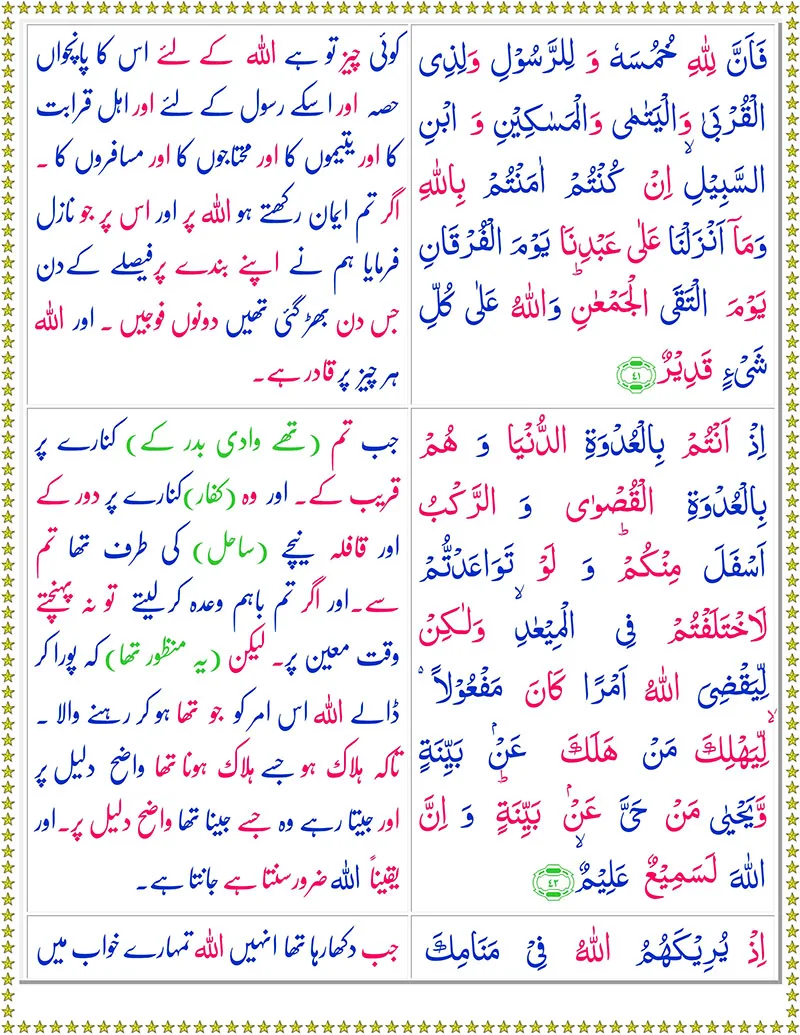 فَاَنَّ لِلّٰهِ خُمُسَهٗ وَ لِلرَّسُوْلِ وَلِذِی
الْقُرْبٰی وَالْیَتٰمٰی وَالْمَسٰكِیْنِ وَ ابْنِ
السَّبِیْلِ ۙ اِنْ كُنْتُمْ اٰمَنْتُمْ بِاللّٰهِ
وَمَاۤ اَنْزَلْنَا عَلٰی عَبْدِنَا یَوْمَ الْفُرْقَانِ
یَوْمَ الْتَقَی الْجَمْعٰنِ ؕ وَاللّٰهُ عَلٰی كُلِّ
شَیْءٍ قَدِیْرٌ ﴿٤١﴾
کوئی چیز تو ہے اللہ کے لئے اس کا پانچواں
حصہ اور اسکے رسول کے لئے اور اہل قرابت
کا اور یتیموں کا اور محتاجوں کا اور مسافروں کا ۔
اگر تم ایمان رکھتے ہو اللہ پر اور اس پر جو نازل
فرمایا ہم نے اپنے بندے پر فیصلے کے دن
جس دن بھڑ گئی تھیں دونوں فوجیں ۔ اور اللہ
ہر چیز پر قادر ہے ۔
اِذْ اَنْتُمْ بِالْعُدْوَةِ الدُّنْیَا وَ هُمْ
بِالْعُدْوَةِ الْقُصْوٰی وَ الرَّكْبُ
اَسْفَلَ مِنْكُمْ ؕ وَ لَوْ تَوَاعَدْتُّمْ
لَاخْتَلَفْتُمْ فِی الْمِیْعٰدِ ۙ وَلٰكِنْ
لِّیَقْضِیَ اللّٰهُ اَمْرًا كَانَ مَفْعُوْلًا ۬ۙ
لِّیَهْلِكَ مَنْ هَلَكَ عَنْۢ بَیِّنَةٍ
وَّیَحْیٰی مَنْ حَیَّ عَنْۢ بَیِّنَةٍ ؕ وَ اِنَّ
اللّٰهَ لَسَمِیْعٌ عَلِیْمٌ ۙ﴿٤٢﴾
جب تم (تھے وادی بدر کے) کنارے پر
قریب کے ۔ اور وہ (کفار) کنارے پر دور کے
اور قافلہ نیچے (ساحل) کی طرف تھا تم
سے ۔ اور اگر تم باہم وعدہ کر لیتے تو نہ پہنچتے
وقت معین پر ۔ لیکن (یہ منظور تھا) کہ پورا کر
ڈالے اللہ اس امر کو جو تھا ہو کر رہنے والا ۔
تاکہ ہلاک ہو جسے ہلاک ہونا تھا واضح دلیل پر
اور جیتا رہے وہ جسے جینا تھا واضح دلیل پر ۔ اور
یقیناً اللہ ضرور سنتا ہے جانتا ہے ۔
اِذْ یُرِیْكَهُمُ اللّٰهُ فِیْ مَنَامِكَ
جب دکھا رہا تھا انہیں اللہ تمہارے خواب میں